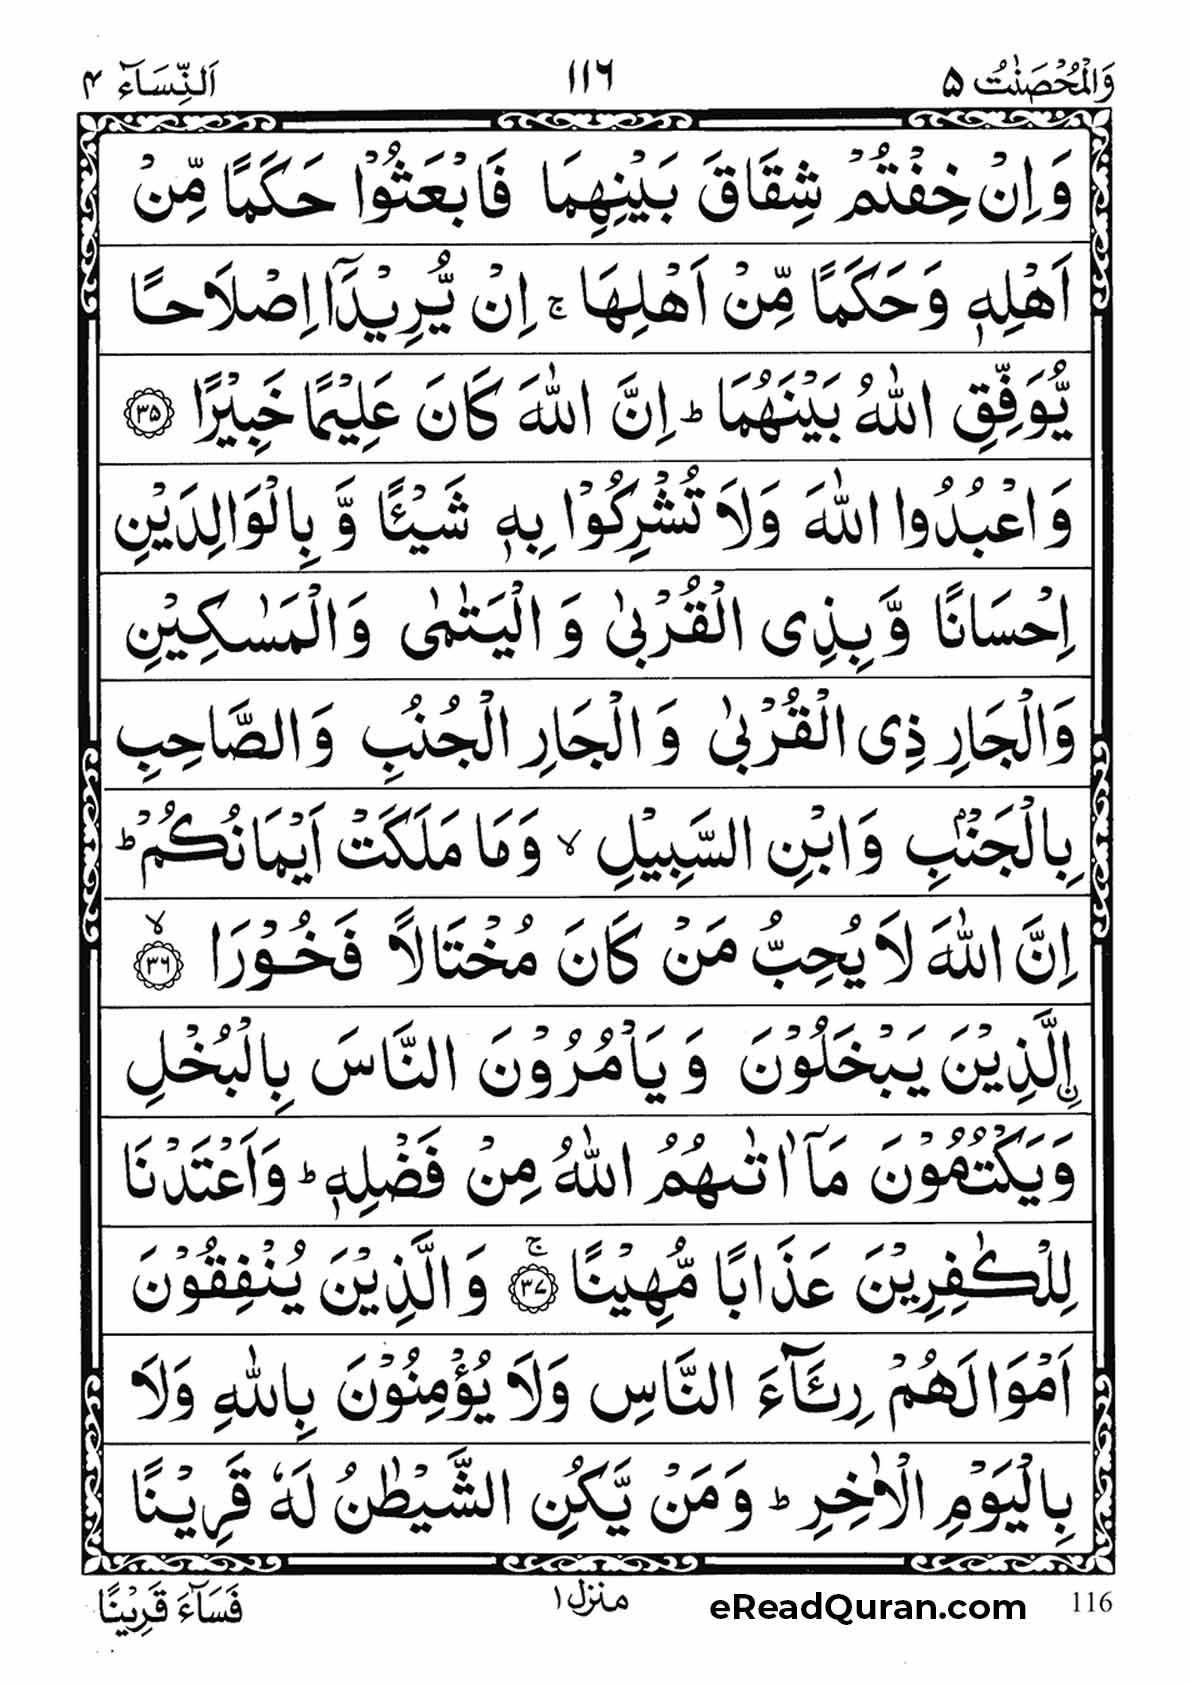 وَالْمُحْصَنٰتُ ۵ ۱۱۶ اَلنِّسَآءُ ۴
وَاِنْ خِفْتُمْ شِقَاقَ بَيْنِهِمَا فَابْعَثُوْا حَكَمًا مِّنْ
اَهْلِهٖ وَحَكَمًا مِّنْ اَهْلِهَا ۚ اِنْ يُّرِيْدَآ اِصْلَاحًا
يُّوَفِّقِ اللّٰهُ بَيْنَهُمَا ؕ اِنَّ اللّٰهَ كَانَ عَلِيْمًا خَبِيْرًا ۝۳۵
وَاعْبُدُوا اللّٰهَ وَلَا تُشْرِكُوْا بِهٖ شَيْـًٔا وَّ بِالْوَالِدَيْنِ
اِحْسَانًا وَّ بِذِى الْقُرْبٰى وَ الْيَتٰمٰى وَالْمَسٰكِيْنِ
وَالْجَارِ ذِى الْقُرْبٰى وَ الْجَارِ الْجُنُبِ وَالصَّاحِبِ
بِالْجَنْۢبِ وَابْنِ السَّبِيْلِ ۙ وَمَا مَلَكَتْ اَيْمَانُكُمْ ؕ
اِنَّ اللّٰهَ لَا يُحِبُّ مَنْ كَانَ مُخْتَالًا فَخُوْرَا ۝۳۶ ۙ
اۨلَّذِيْنَ يَبْخَلُوْنَ وَ يَاْمُرُوْنَ النَّاسَ بِالْبُخْلِ
وَيَكْتُمُوْنَ مَآ اٰتٰىهُمُ اللّٰهُ مِنْ فَضْلِهٖ ؕ وَاَعْتَدْنَا
لِلْكٰفِرِيْنَ عَذَابًا مُّهِيْنًا ۝۳۷ ۚ وَالَّذِيْنَ يُنْفِقُوْنَ
اَمْوَالَهُمْ رِئَآءَ النَّاسِ وَلَا يُؤْمِنُوْنَ بِاللّٰهِ وَلَا
بِالْيَوْمِ الْاٰخِرِ ؕ وَمَنْ يَّكُنِ الشَّيْطٰنُ لَهٗ قَرِيْنًا
116 eReadQuran.com منزل ۱ فَسَآءَ قَرِيْنًا